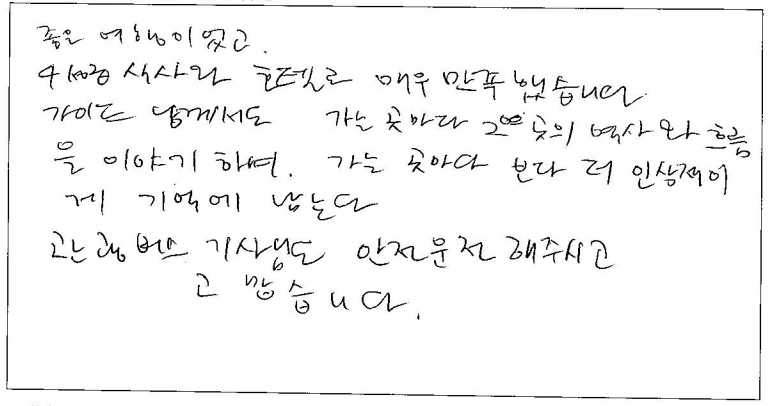 좋은 여행이었고.
식사와 호텔도 매우 만족했습니다
가이드 님께서도 가는 곳마다 그곳의 역사와 흐름
을 이야기 하며. 가는 곳마다 보다 더 인상적이
게 기억에 남는다
관광 버스 기사님도 안전운전 해주시고
고맙습니다.